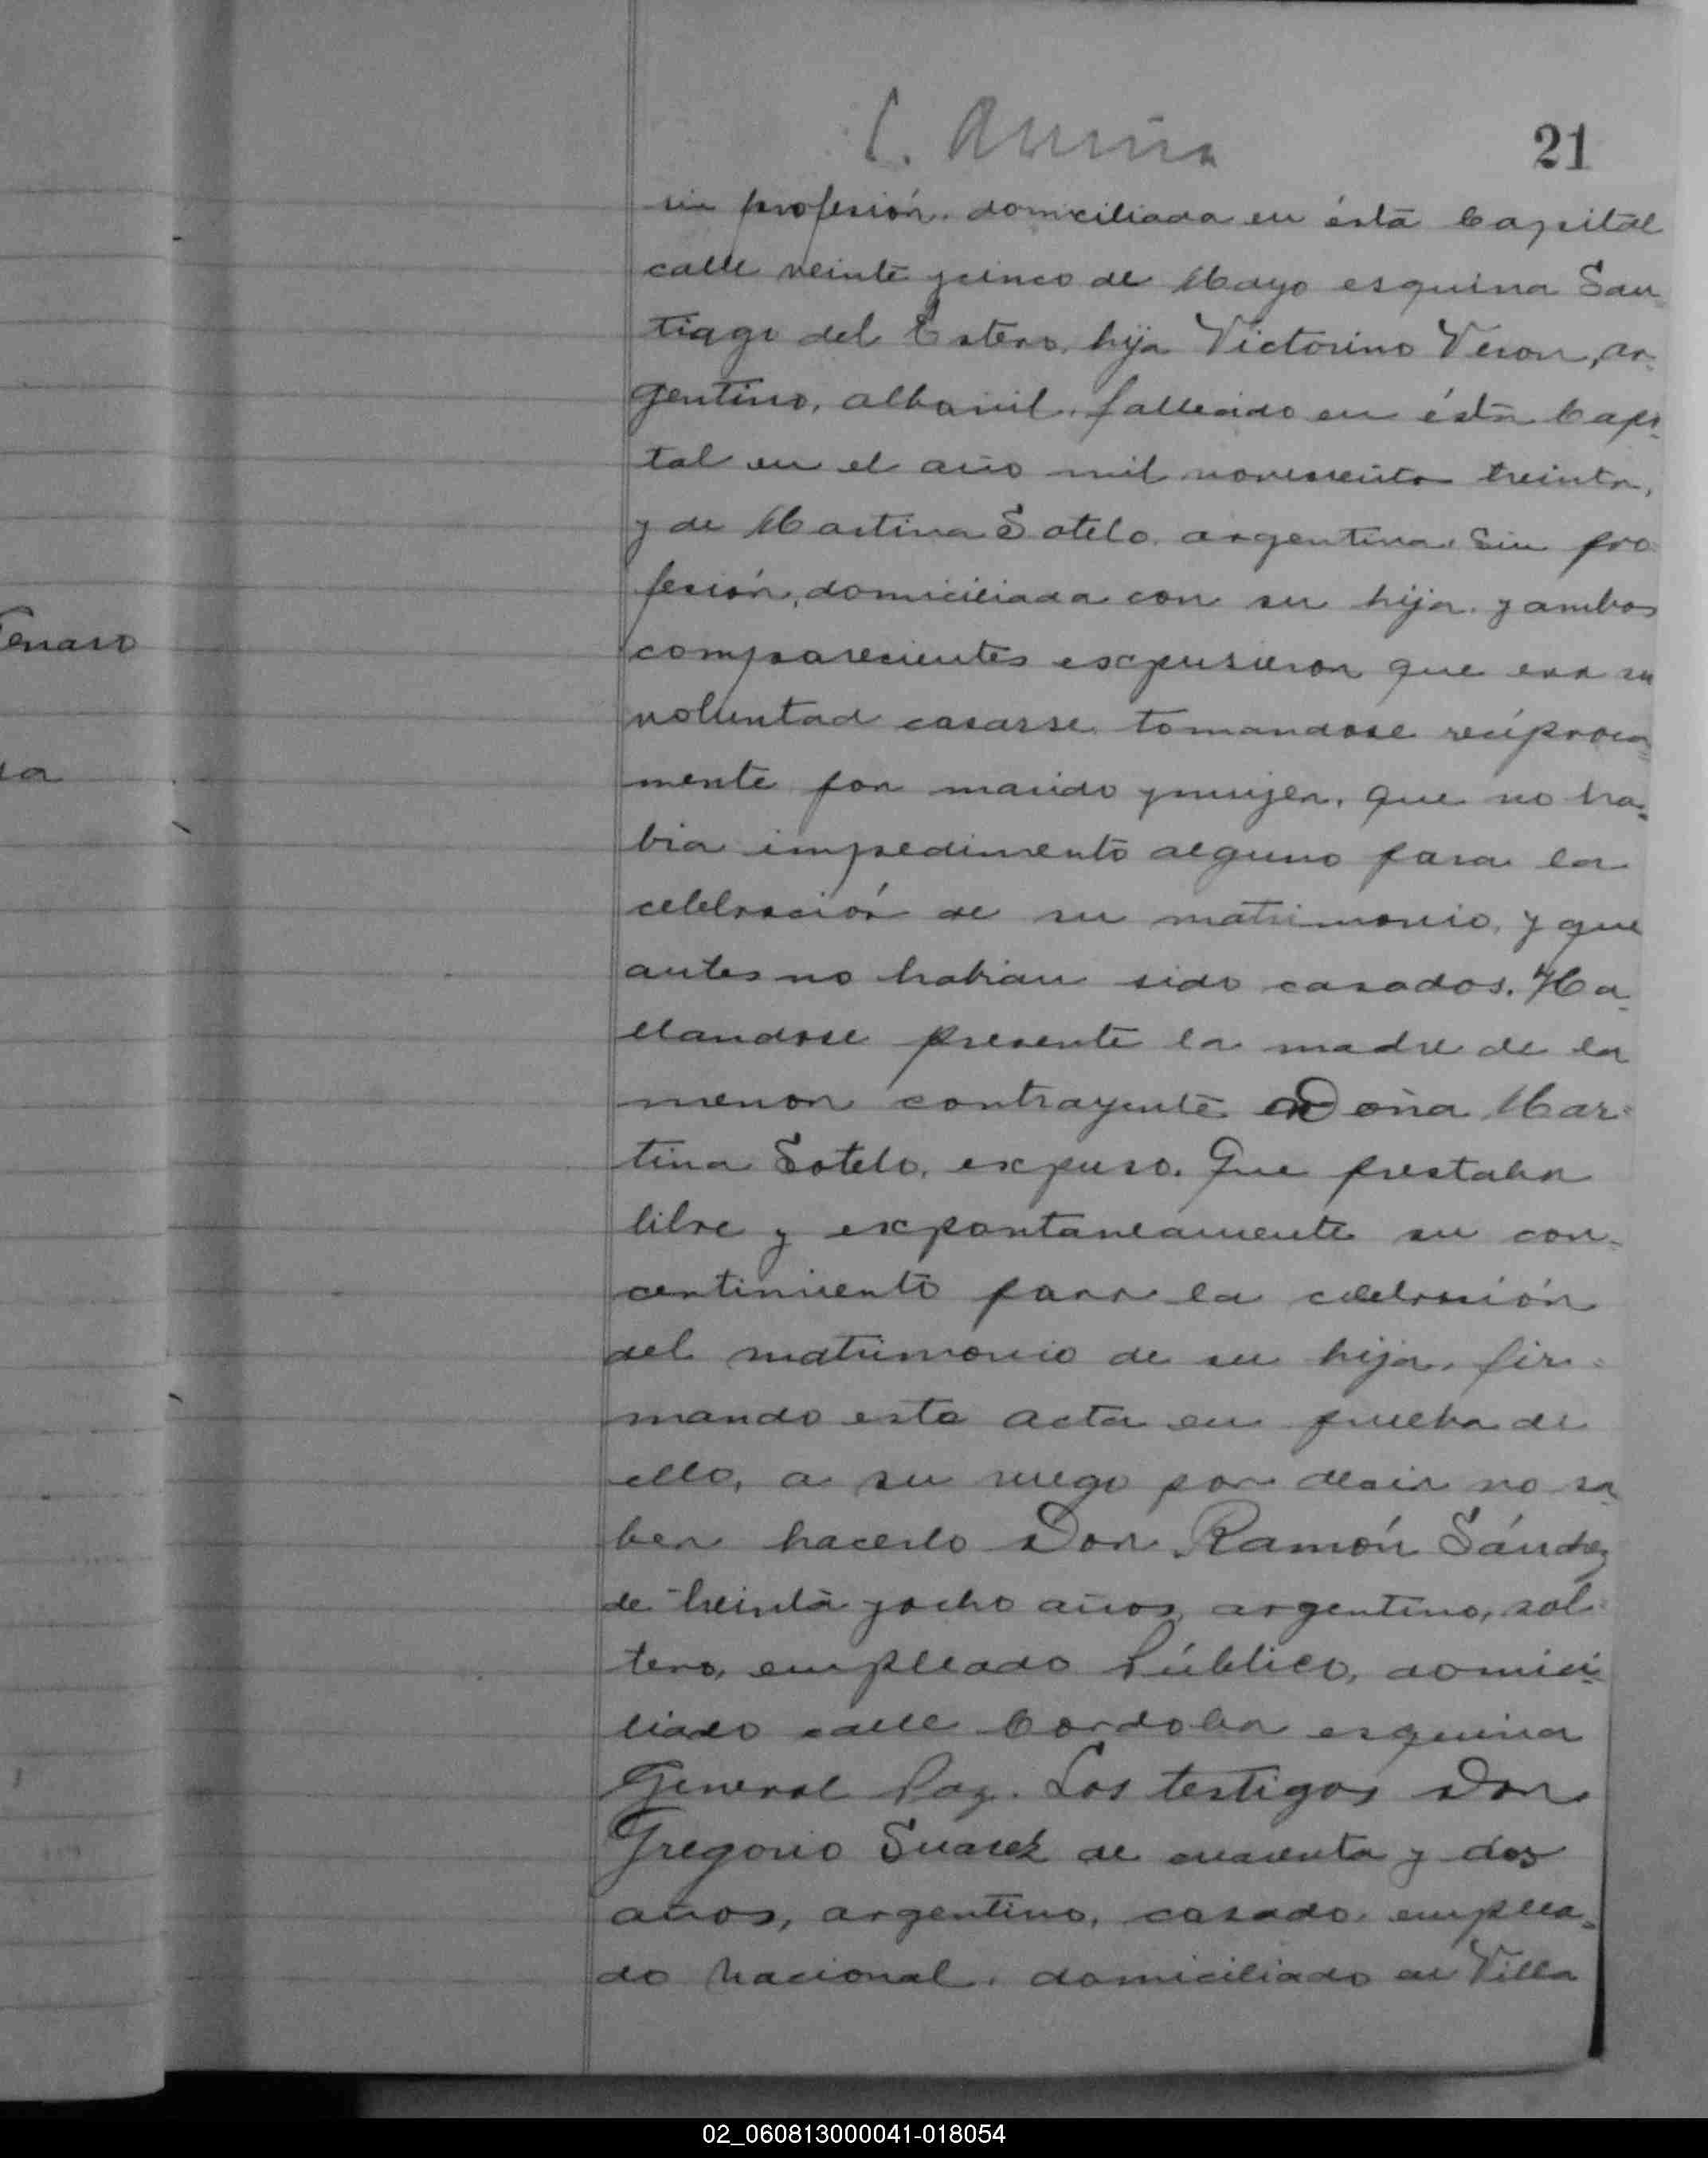 21
sin profesión. domiciliada en ésta Capital
calle veinte y cinco de Mayo esquina San
tiago del Estero, hija Victorino Veron, ar-
gentino, albanil, fallecido en ésta Capi-
tal en el año mil novecientos treinta,
y de Martina Sotelo, argentina, sin pro
fesión, domiciliada con su hija. y ambos
comparecientes expusieron que era su
voluntad casarse tomandose reciproca-
mente por marido y mujer, que no ha-
bia impedimento alguno para la
celebración de su matrimonio, y que
antes no habian sido casados. Ha-
llandose presente la madre de la
menor contrayente Doña Mar-
tina Sotelo, expuso. Que prestaba
libre y expontaneamente su con-
centimiento para la celebración
del matrimonio de su hija, fir-
mando esta acta en prueba de
ello, a su ruego por decir no sa-
ber hacerlo Don Ramón Sánchez
de treinta y ocho años, argentino, sol-
tero, empleado Público, domici-
liado calle Cordoba esquina
General Paz. Los testigos Don
Gregorio Suarez de cuarenta y dos
años, argentino, casado, emplea-
do nacional, domiciliado en Villa
02_060813000041-018054